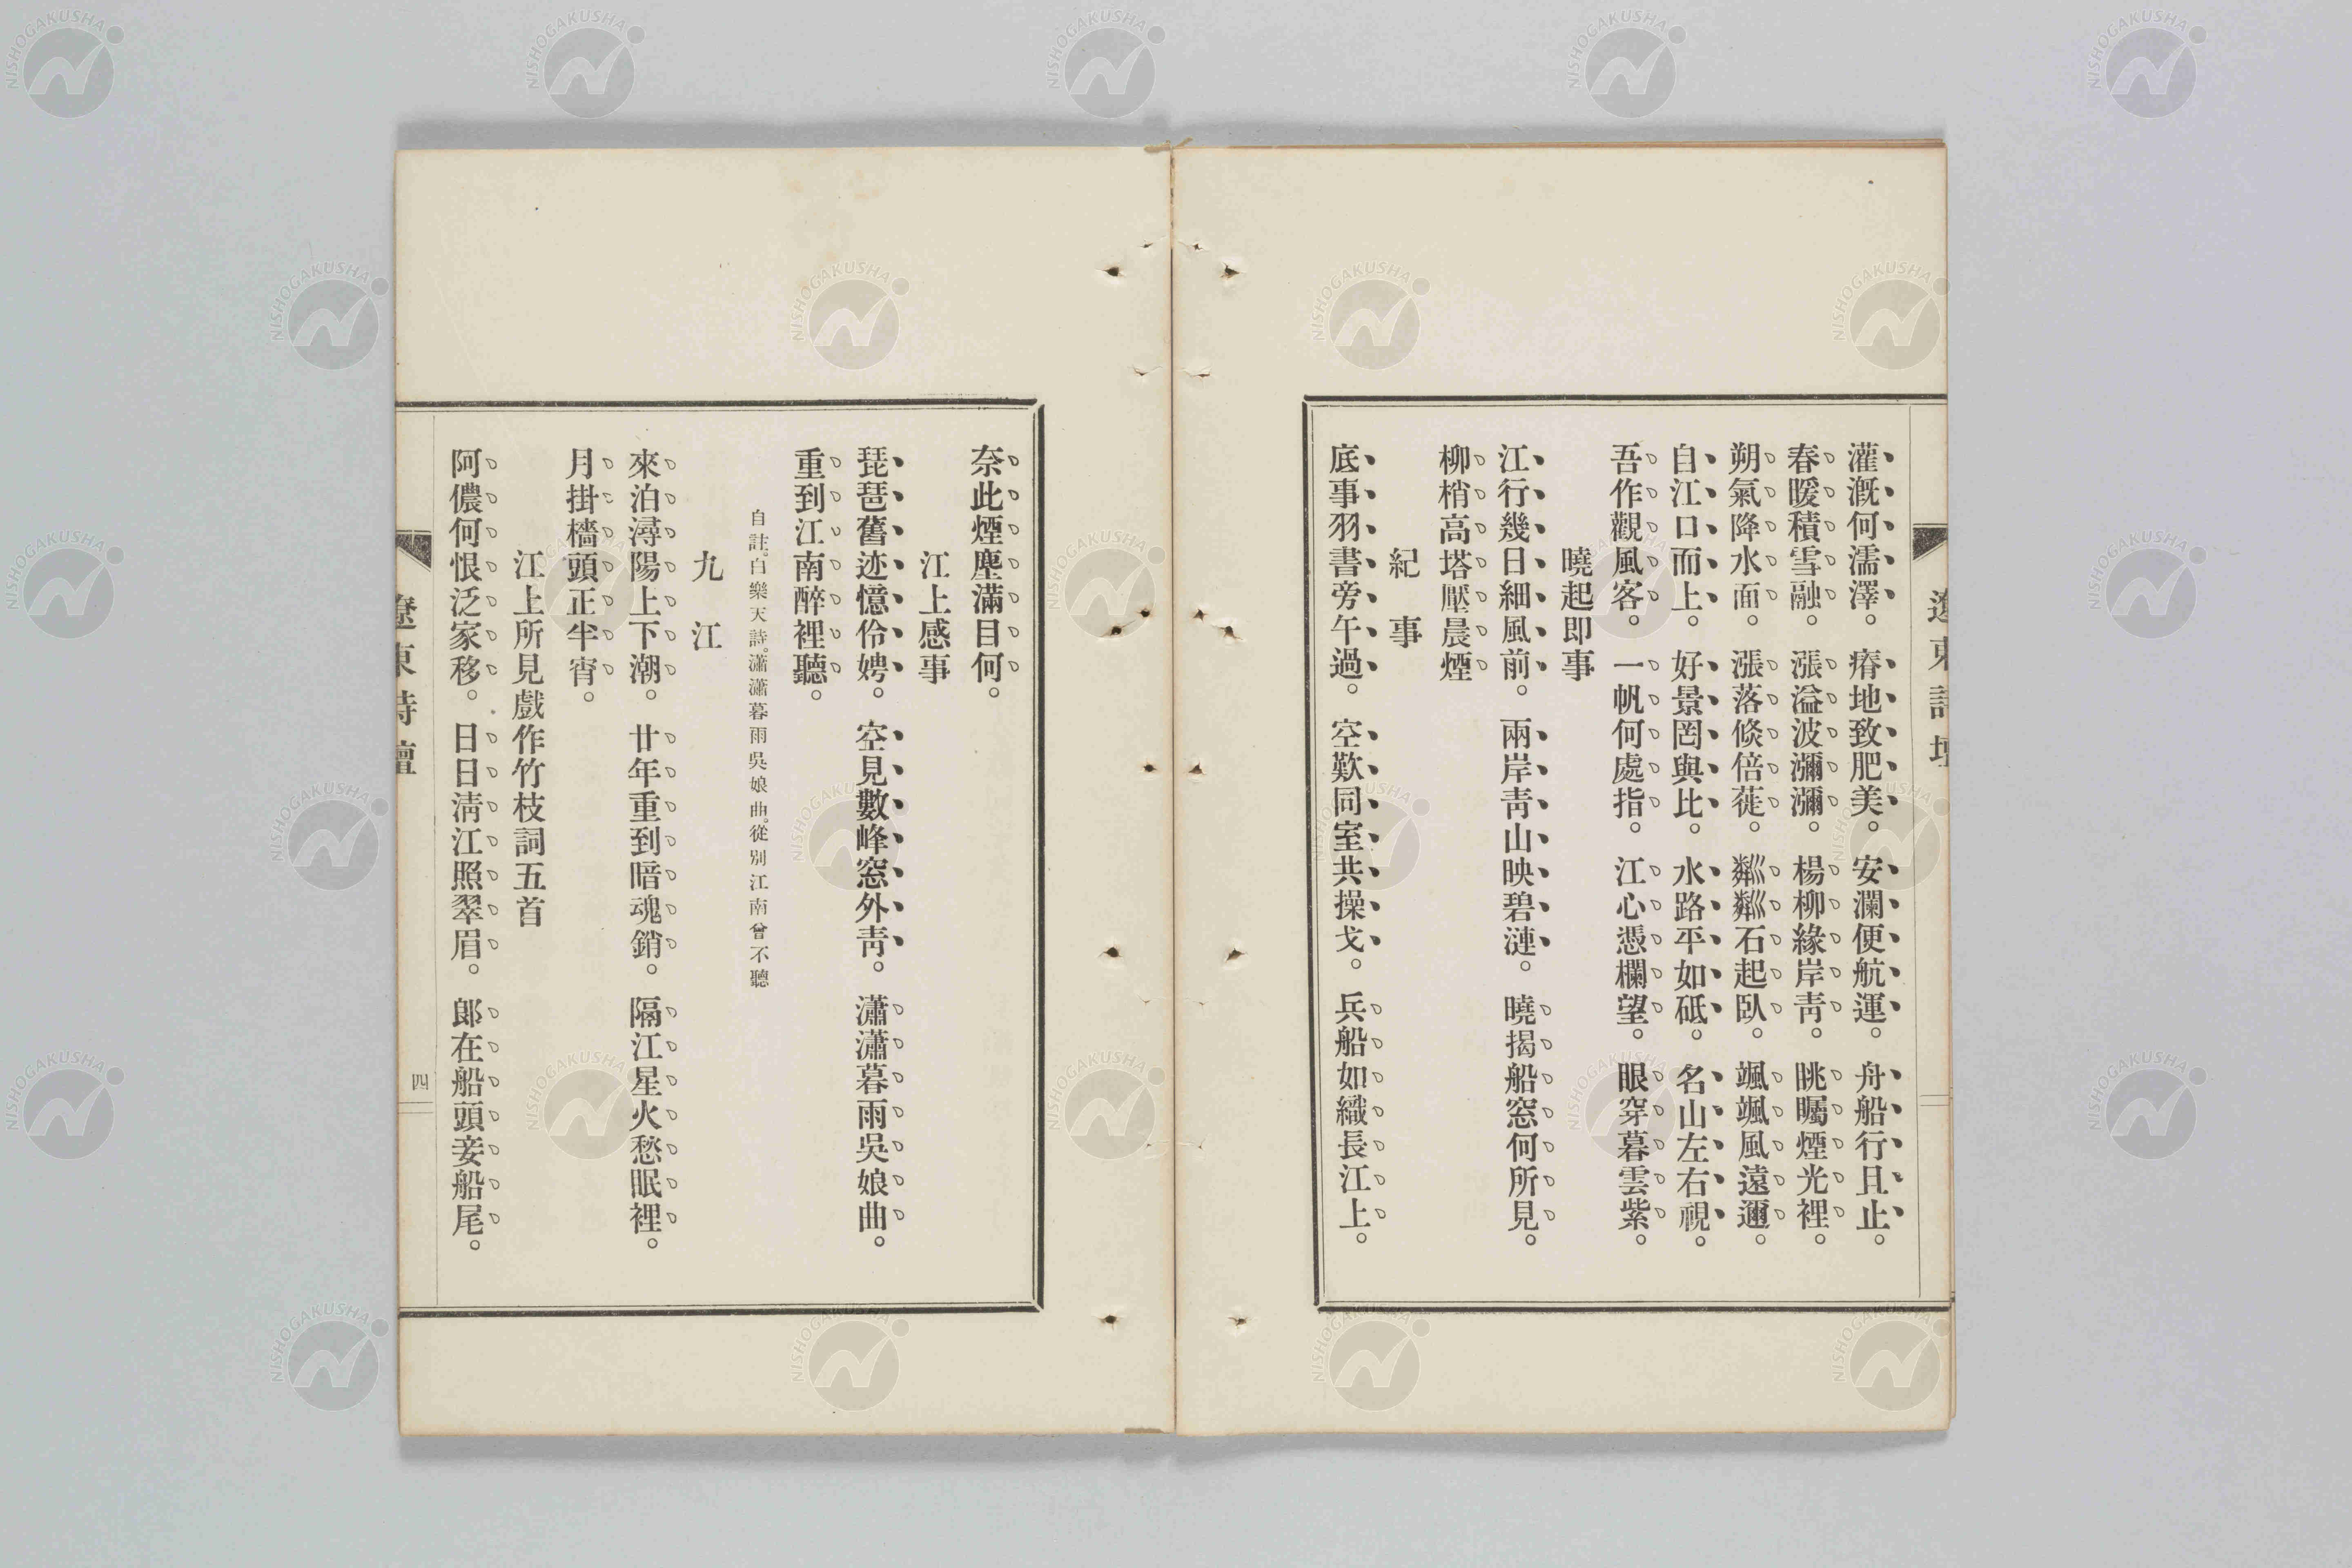 灌漑何濡澤。瘠地致肥美。安瀾便航運。舟船行且止。
春暖積雪融。漲溢波瀰瀰。楊柳緣岸靑。眺矚煙光裡。
朔氣降水面。漲落倐倍蓰。粼粼石起臥。颯颯風遠邇。
自江口而上。好景罔與比。水路平如砥。名山左右視。
吾作觀風客。一帆何處指。江心憑欄望。眼穿暮雲紫。
曉起即事
江行幾日細風前。兩岸靑山映碧漣。曉揭船窓何所見。
柳梢高塔壓晨煙
紀事
底事羽書旁午過。空歎同室共操戈。兵船如織長江上。
奈此煙塵滿目何。
江上感事
琵琶舊迹憶伶娉。空見數峰窓外靑。瀟瀟暮雨吳娘曲。
重到江南醉裡聽。
自註。白樂天詩。瀟瀟暮雨吳娘曲。從別江南曾不聽
九江
來泊潯陽上下潮。廿年重到暗魂銷。隔江星火愁眠裡。
月掛檣頭正半宵。
江上所見戲作竹枝詞五首
阿儂何恨泛家移。日日淸江照翠眉。郞在船頭妾船尾。
遼東詩壇
四
NISHOGAKUSHA